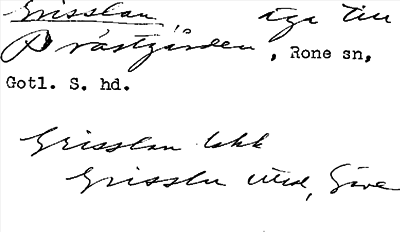 Grisslan, äga till
Prästgården, Rone sn,
Gotl. S. hd.
Grisslan
Grisslu